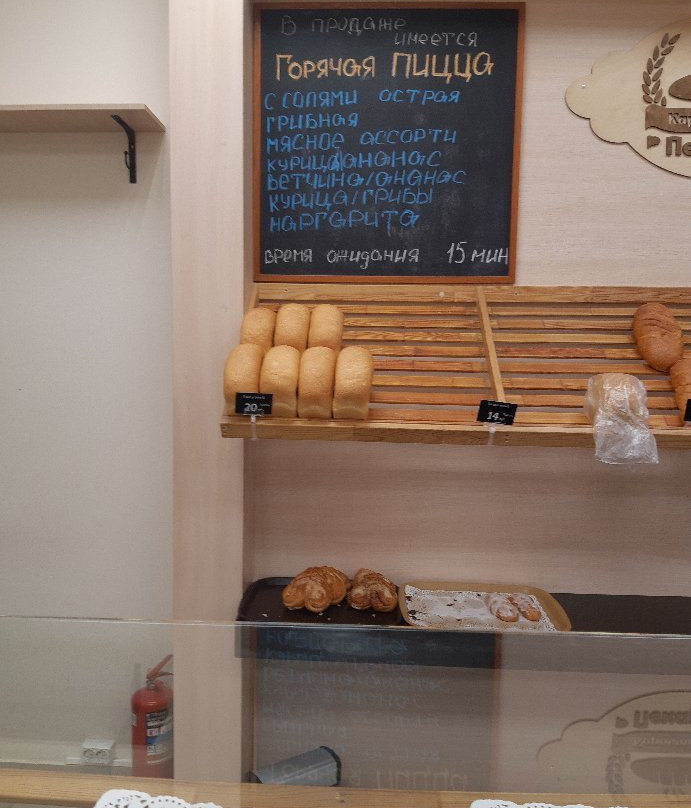 В продаже
имеется
Горячая пицца
с салями острая
грибная
мясное ассорти
курица/ананас
ветчина/ананас
курица/грибы
маргарита
время ожидания 15 мин
20
14